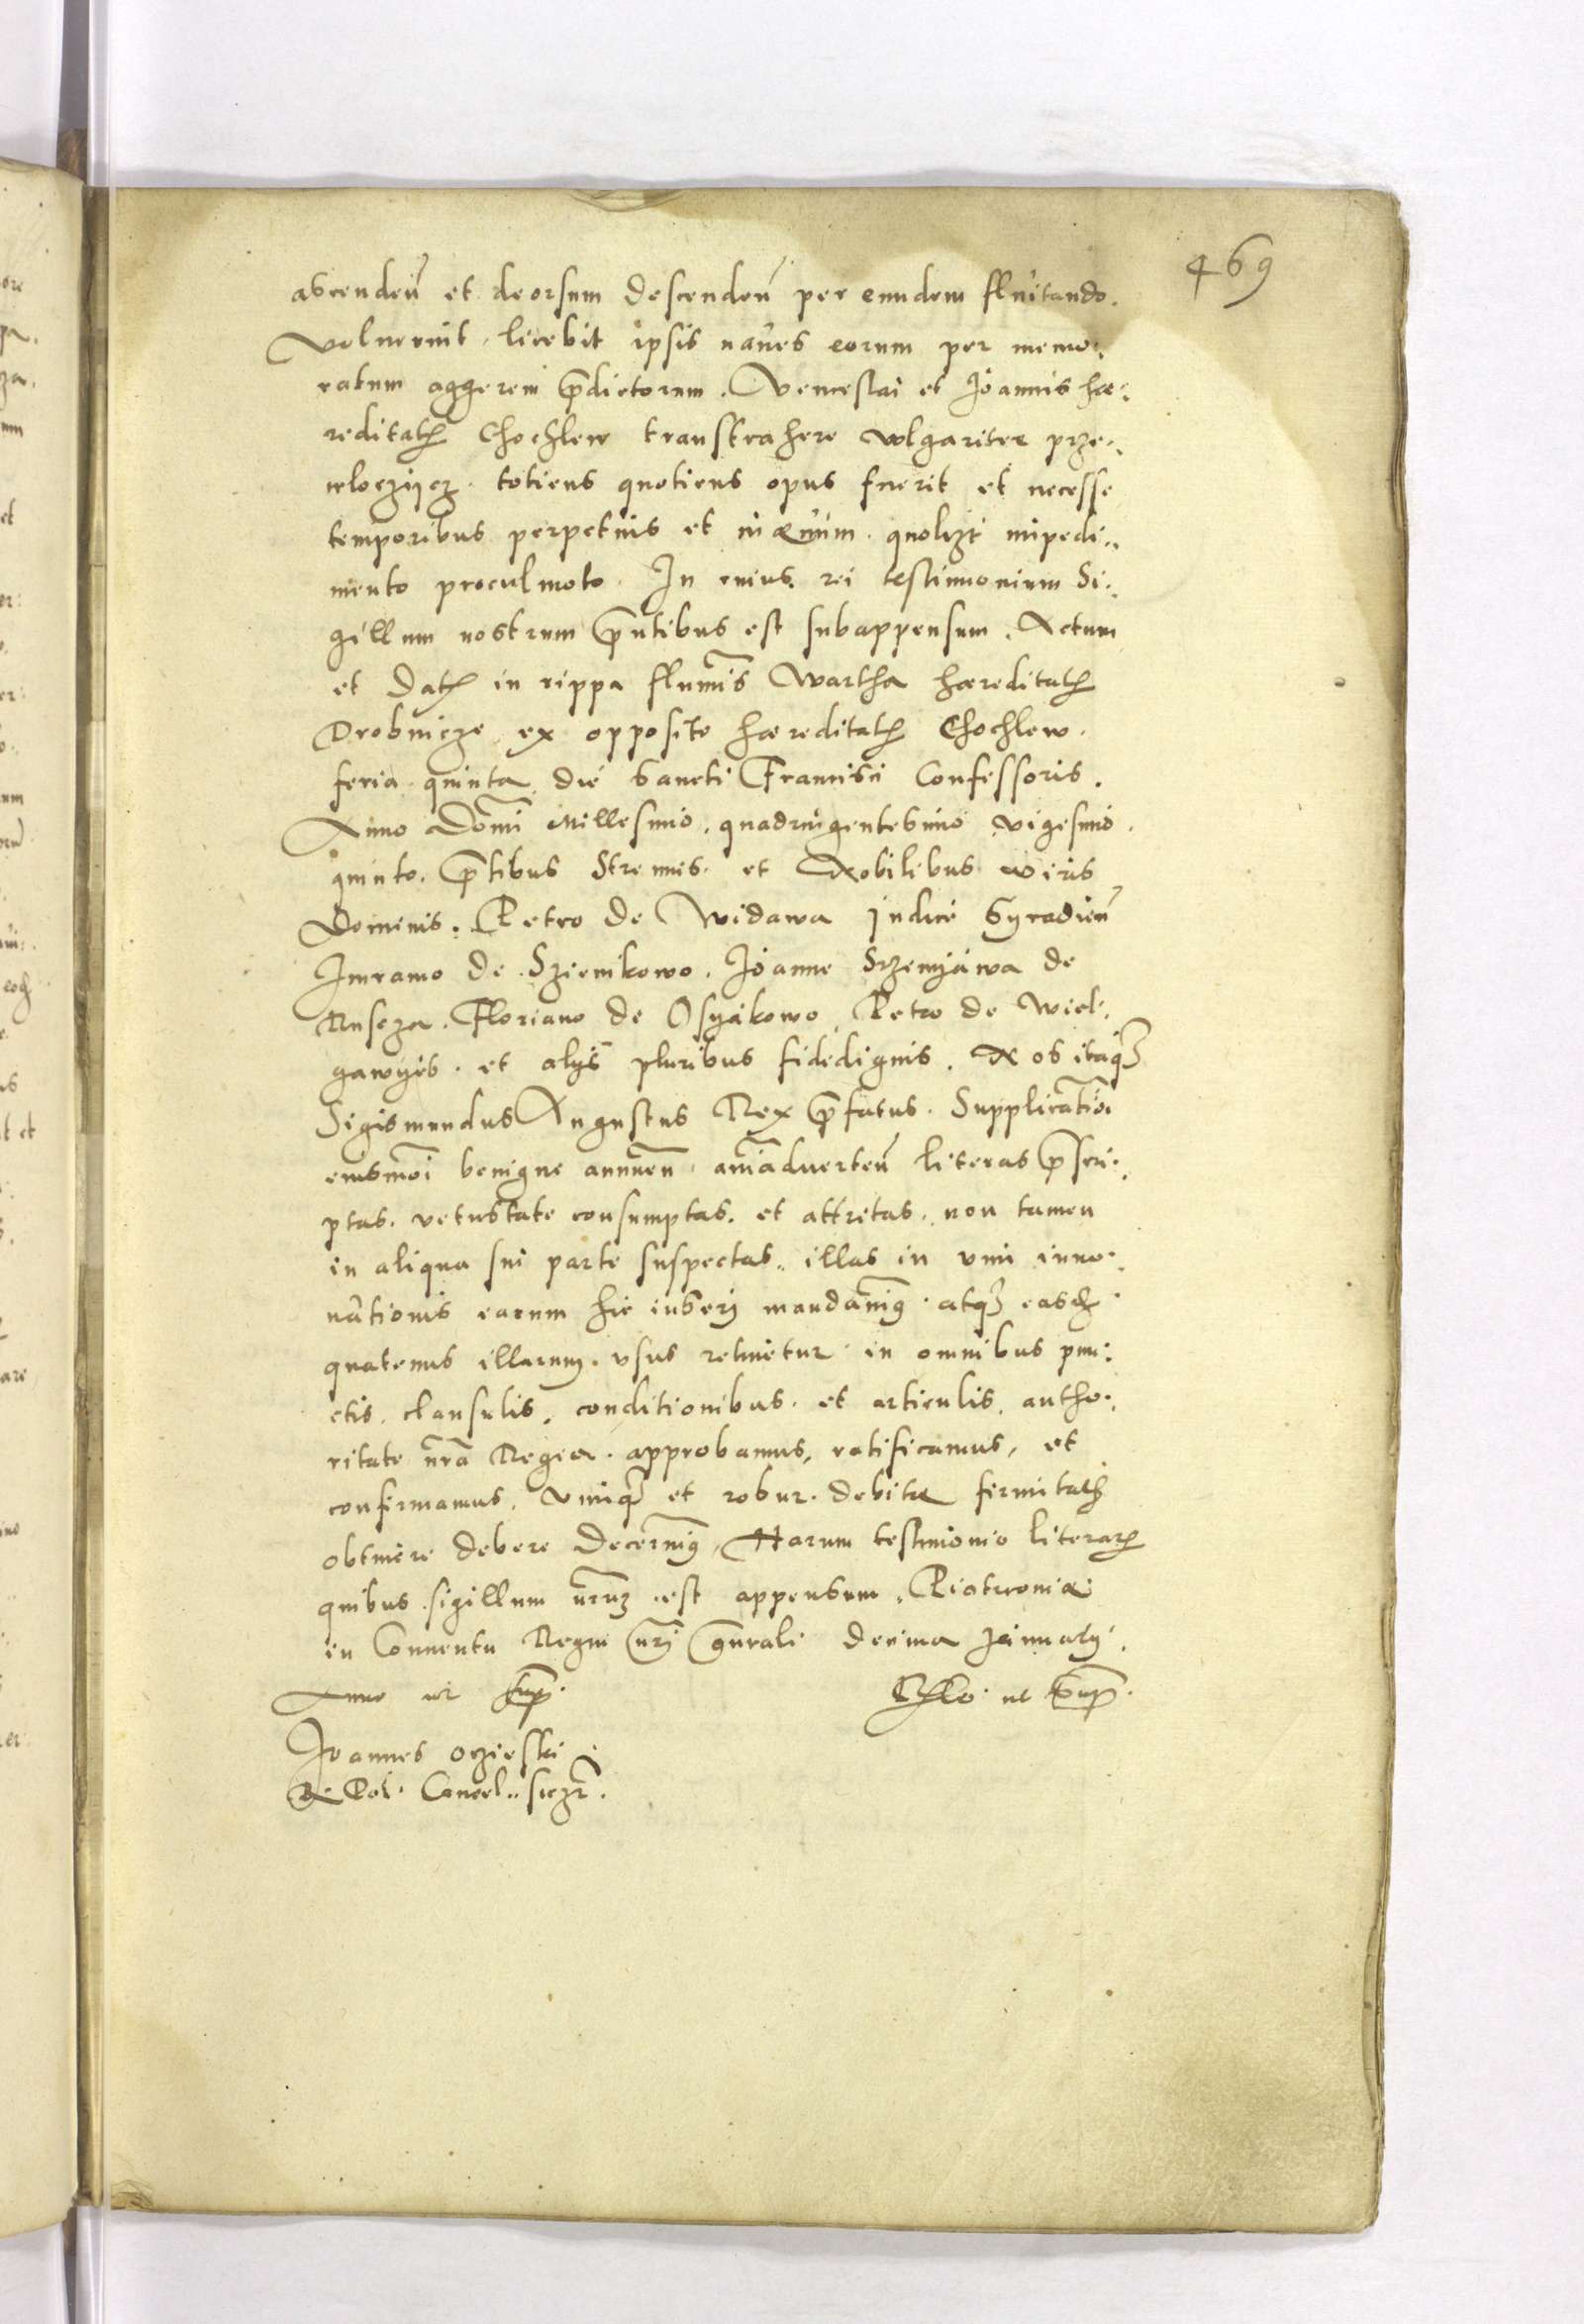 469
ascendeñ et deorsum descendeñ per eundem fluitando.
voluerint, licebit ipsis naues eorum per memo:
ratum aggerem p̃dictorum. Venceslai et Joannis hæ:
reditatis Chochlew transtrahere wlgariter prze:
wloczijcz. totiens quotiens opus fuerit et necesse
temporibus perpetuis et in æuum. quolibet impedi:
mento proculmoto. In cuius rei testimonium Si:
gillum nostrum p̃ntibus est subappensum. Actum
et Datum in rippa flumĩs Wartha hæreditatis
Drobnicze ex opposito hæreditatis Chochlew.
feria quinta die Sancti Francisci Confessoris.
Anno Domĩ Millesimo. quadringentesimo vigesimo
quinto. p̃tibus Strenuis. et Nobilibus viris
Dominis. Petro de Widawa Judice Syradieñ
Imramo de Szienikowo. Joanne Srzenijawa de
Ruscza. Floriano de Osyakowo. Petro de Wiel:
gawyes. et alijs pluribus fidedignis. Nos itaq3
Sigismundus Augustus Rex p̃fatus. Supplicatiõi
eiusmõi benigne annueñ animaduerteñ literas p̃scri:
ptas. vetustate consumptas. et attritas. non tamen
in aliqua sui parte suspectas. illas in vim inno:
uationis earum hic inserj mandauimus. atq3 easdem
quatenus illarum. vsus retinetur in omnibus pun:
ctis. clausulis. conditionibus. et articulis. autho:
ritate ñra Regia. approbamus, ratificamus, et
confirmamus, vimq3 et robur. debitæ firmitatis
obtinere debere decernimus. Harum testimonio literarum
quibus sigillum ñrum est appensum. Piotrcouiæ
in Conuentu Regni ñri gñrali decima Januarij.
Anno ut sup̃. Rlo. ut sup̃.
Joannes oczieski
R. Pol. Cancel. sczr̃.